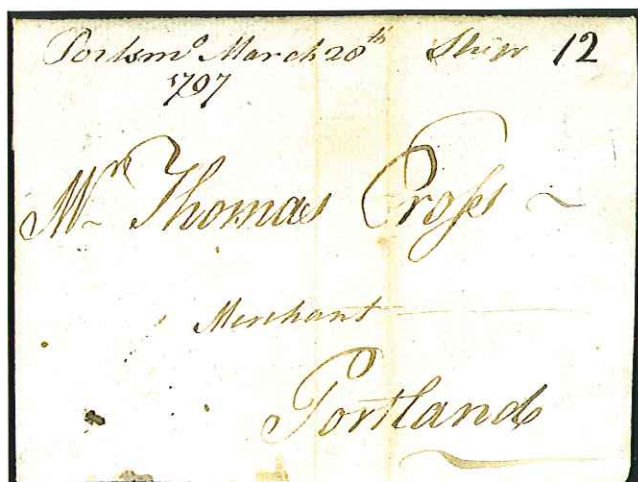 Portsmo March 28th Ship 12
1797
Mr. Thomas Croſs
Merchant
Portland